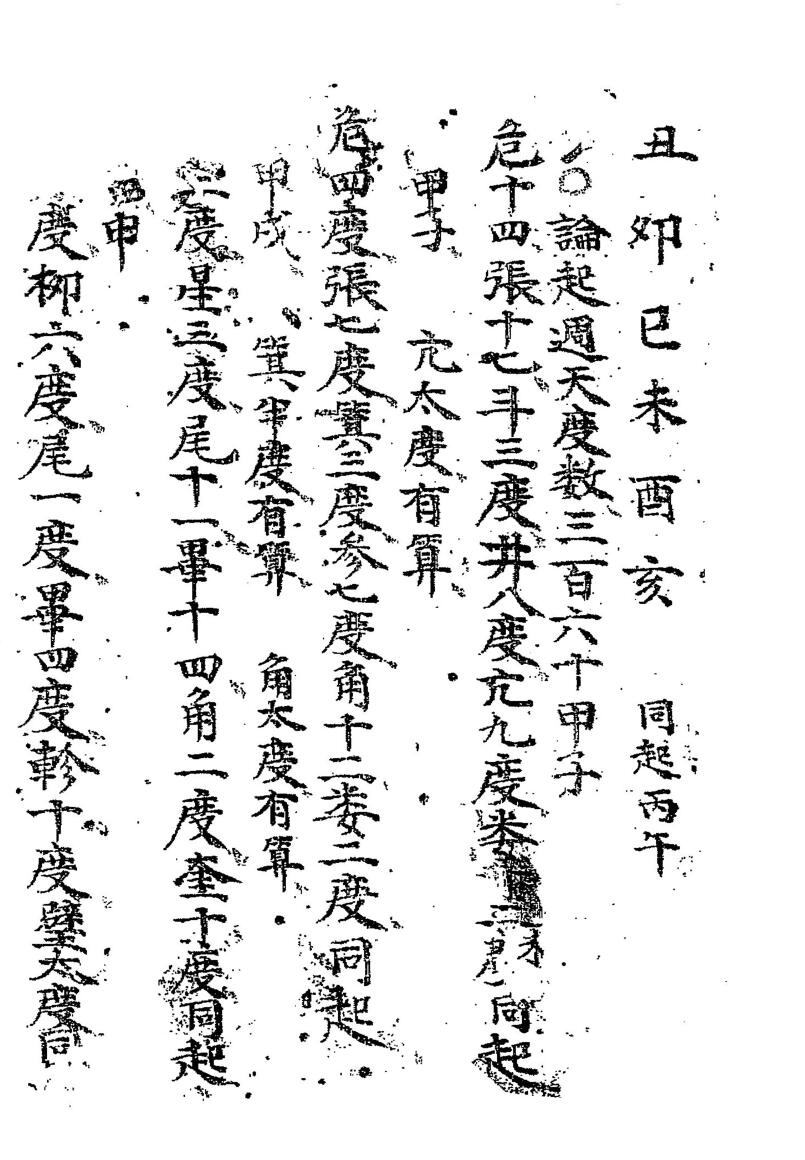 丑卯巳未酉亥 同起丙午
○論起週天度数三百六十甲子
危十四張十七斗三度井八度亢九度娄同起
甲子 亢太度有算
危四度張七度箕三度参七度角十二娄二度同起
甲戌 箕半度有算 角太度有算
度星三度尾十一畢十四角二度奎十度同起
申
度柳六度尾一度畢四度軫十度壁太度同